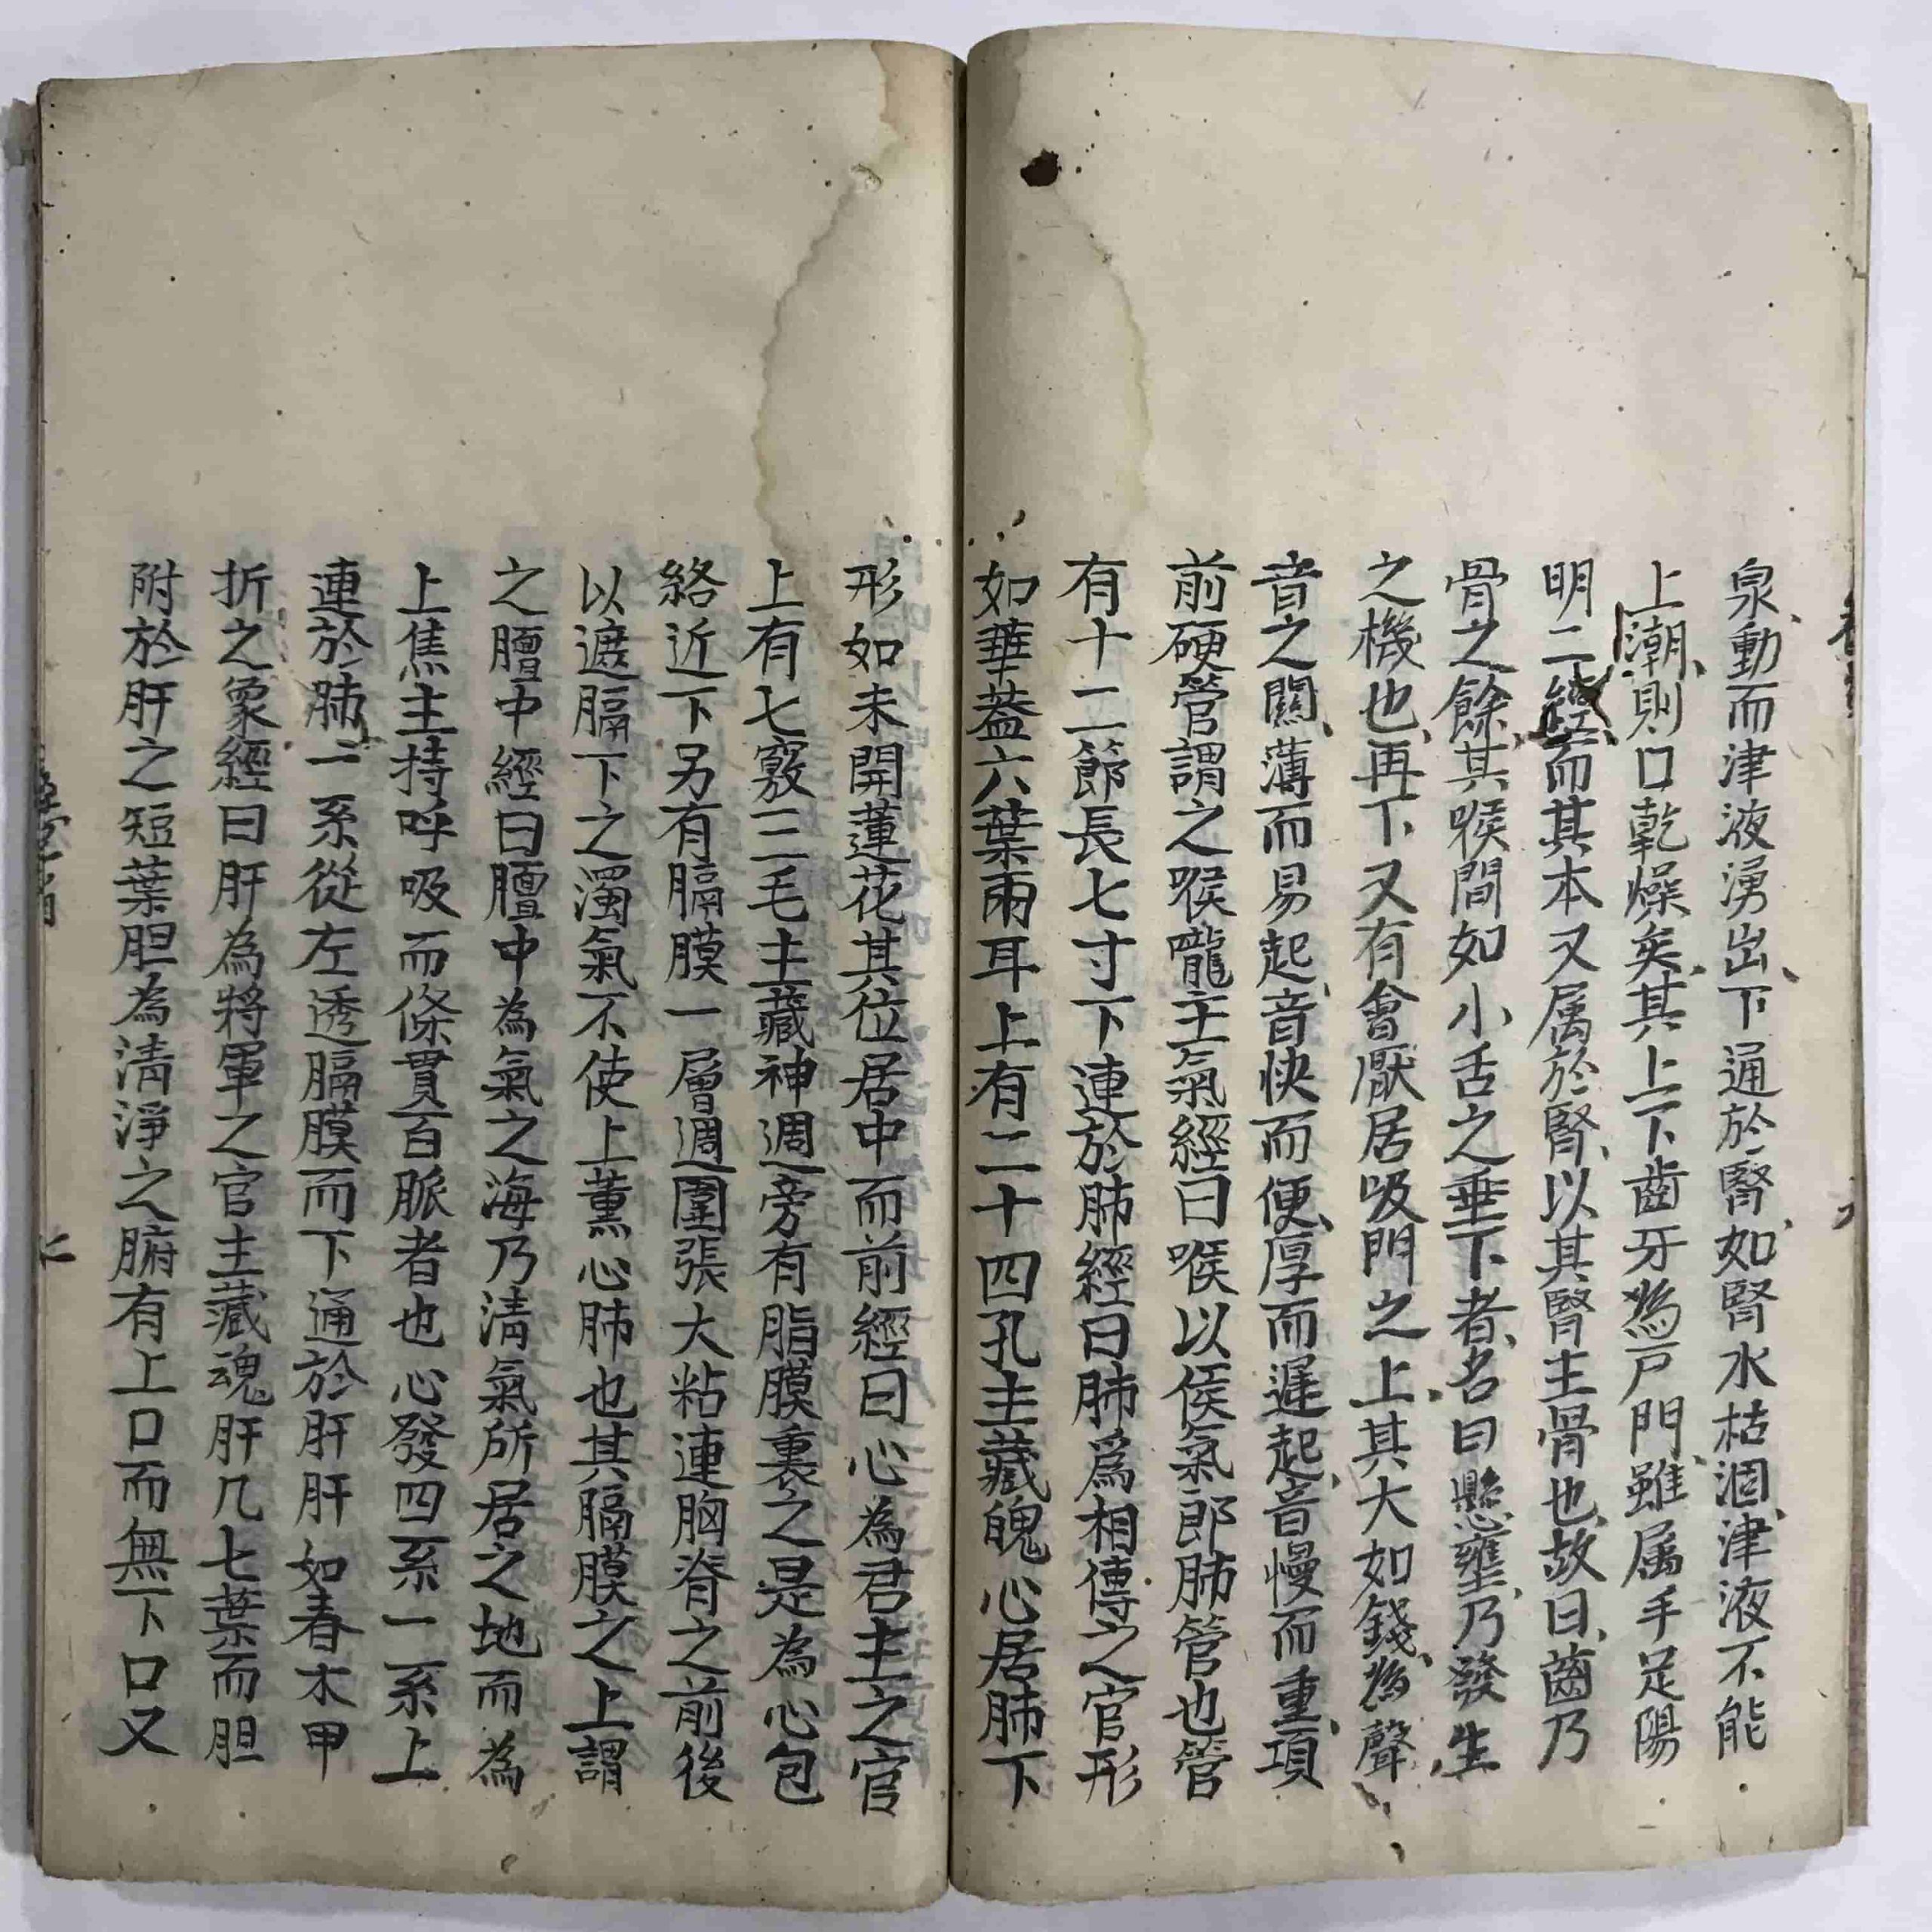 泉動而津液湧出下通於腎如腎水枯涸津液不能
上潮則口乾燥矣其上下齒牙為戸門雖属手足陽
明二經而其本又属於腎以其腎主骨也故曰齒乃
骨之餘其喉間如小舌之垂下者名曰懸壅乃發生
之機也再下又有會厭居吸門之上其大如錢為聲
音之關薄而易起音快而便厚而遲起音慢而重項
前硬管謂之喉嚨主氣經曰喉以侯氣郎肺管也管
有十二節長七寸下連於肺經曰肺爲相傳之官形
如華蓋六葉兩耳上有二十四孔主藏魄心居肺下
形如未開蓮花其位居中而前經曰心為君主之官
上有七竅三毛主藏神週旁有脂膜裹之是為心包
絡近下另有膈膜一層週圍張大粘連胸脊之前後
以遮膈下之濁氣不使上薰心肺也其膈膜之上謂
之膻中經曰膻中為氣之海乃清氣所居之地而為
上焦主持呼吸而條貫百脈者也心發四系一系上
連於肺一系從左透膈膜而下通於肝肝如春木甲
折之象經曰肝為將軍之官主藏魂肝几七葉而胆
附於肝之短葉胆為清淨之腑有上口而無下口又